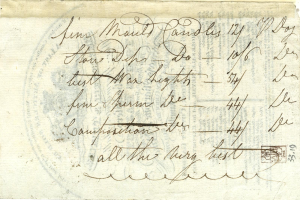 fine Mould Candles 12/ ℘ Doz
Store Dips Do — 10/6 De
best Wax lights — 54/ De
fine Sperm De — 44/ De
Composition De — 44/ De
all the very best